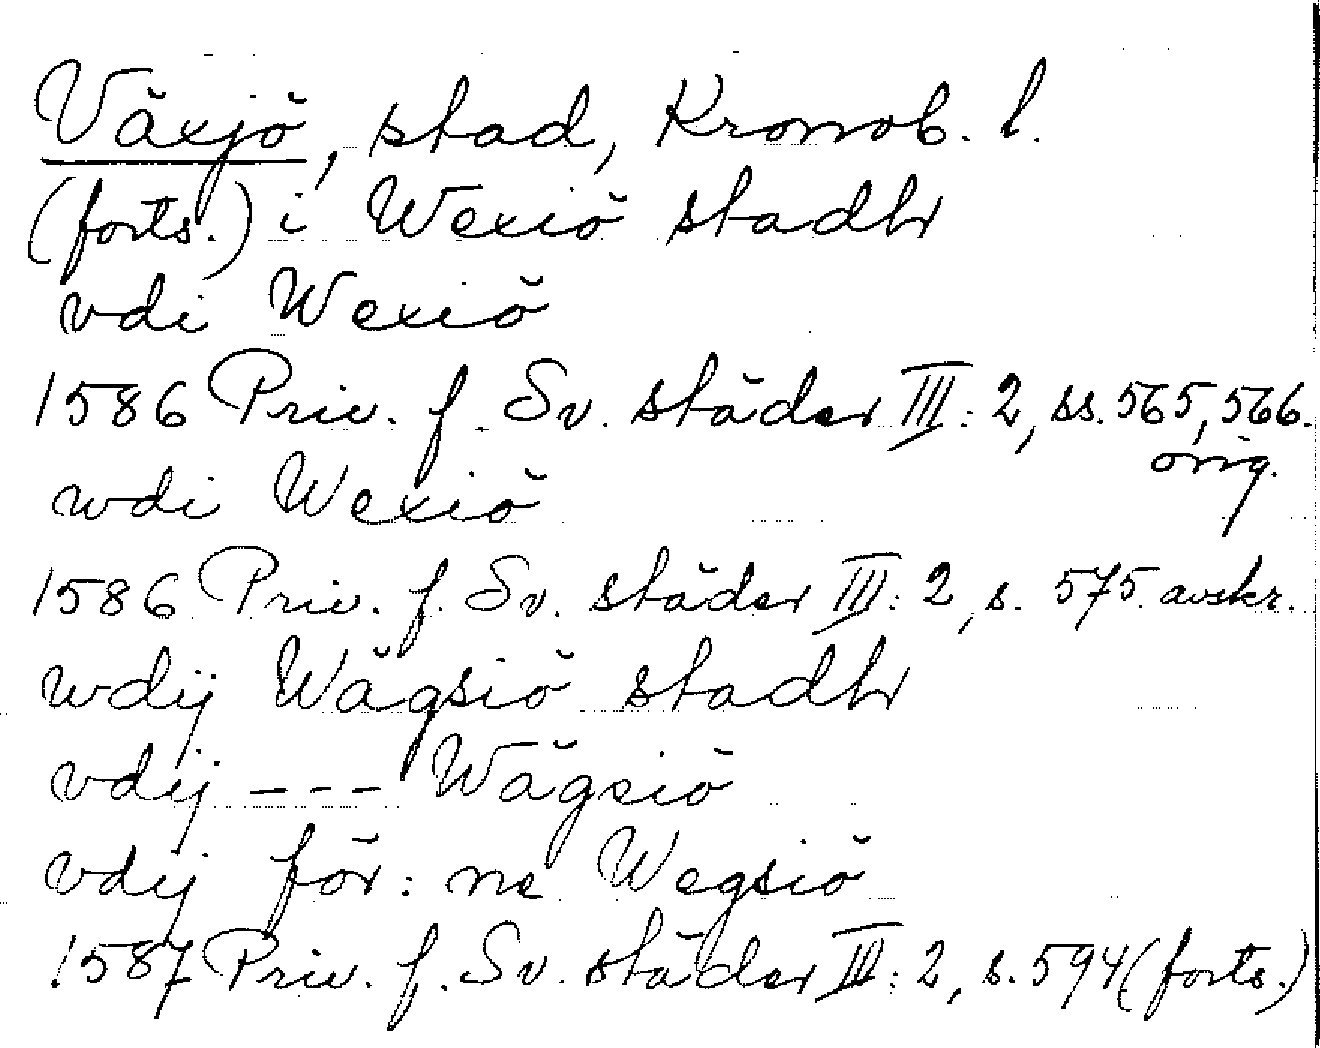 Växjö, stad, Kronob. l.
(forts.) i Wexiö stadh
vdi Wexiö
1586 Priv. f. Sv. städer III: 2, ss. 565, 566.
orig.
wdi Wexiö
1586 Priv. f. Sv. städer III: 2, s. 575. avskr.
wdij Wägsiö stadh
vdij --- Wägsiö
vdij för: ne Wegsiö
1587 Priv. f. Sv. städer III: 2, s. 594 (forts.)